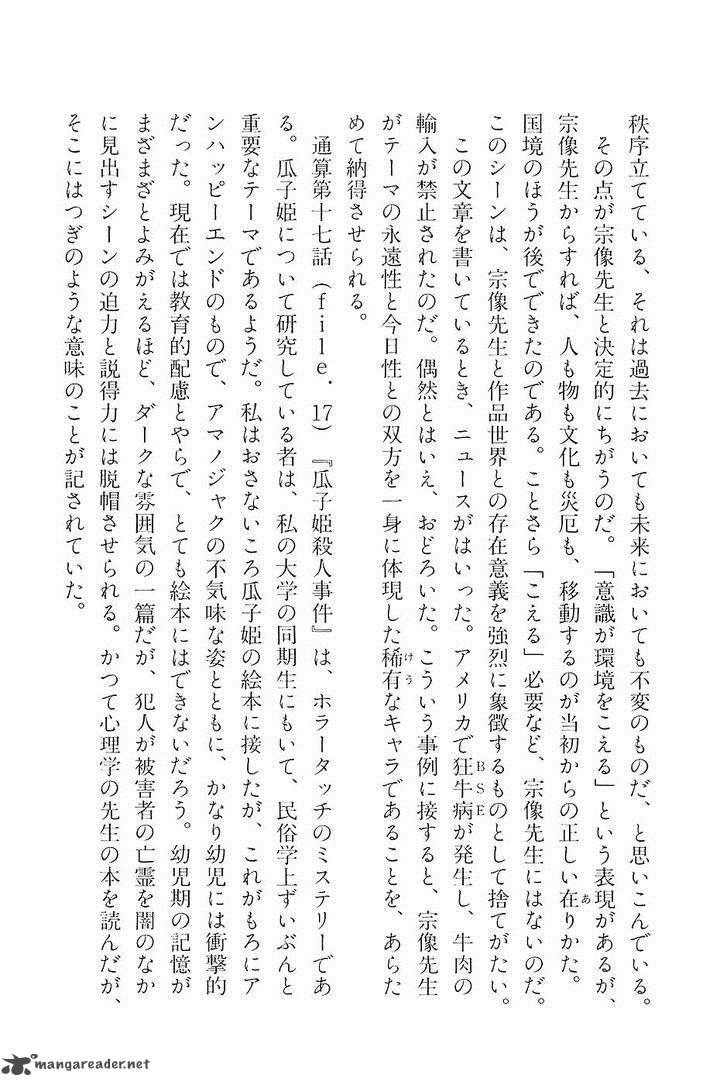 秩序立てている、それは過去においても未来においても不変のものだ、と思いこんでいる。
その点が宗像先生と決定的にちがうのだ。「意識が環境をこえる」という表現があるが、
宗像先生からすれば、人も物も文化も災厄も、移動するのが当初からの正しい在りかた。
国境のほうが後でできたのである。ことさら「こえる」必要など、宗像先生にはないのだ。
このシーンは、宗像先生と作品世界との存在意義を強烈に象徴するものとして捨てがたい。
この文章を書いているとき、ニュースがはいった。アメリカで狂牛病が発生し、牛肉の
輸入が禁止されたのだ。偶然とはいえ、おどろいた。こういう事例に接すると、宗像先生
がテーマの永遠性と今日性との双方を一身に体現した稀有なキャラであることを、あらた
めて納得させられる。
通算第十七話（file.17）『瓜子姫殺人事件』は、ホラータッチのミステリーであ
る。瓜子姫について研究している者は、私の大学の同期生にもいて、民俗学上ずいぶんと
重要なテーマであるようだ。私はおさないころ瓜子姫の絵本に接したが、これがもろにア
ンハッピーエンドのもので、アマノジャクの不気味な姿とともに、かなり幼児には衝撃的
だった。現在では教育的配慮とやらで、とても絵本にはできないだろう。幼児期の記憶が
まざまざとよみがえるほど、ダークな雰囲気の一篇だが、犯人が被害者の亡霊を闇のなか
に見出すシーンの迫力と説得力には脱帽させられる。かつて心理学の先生の本を読んだが、
そこにはつぎのような意味のことが記されていた。
あ
BSE
けう
mangareader.net